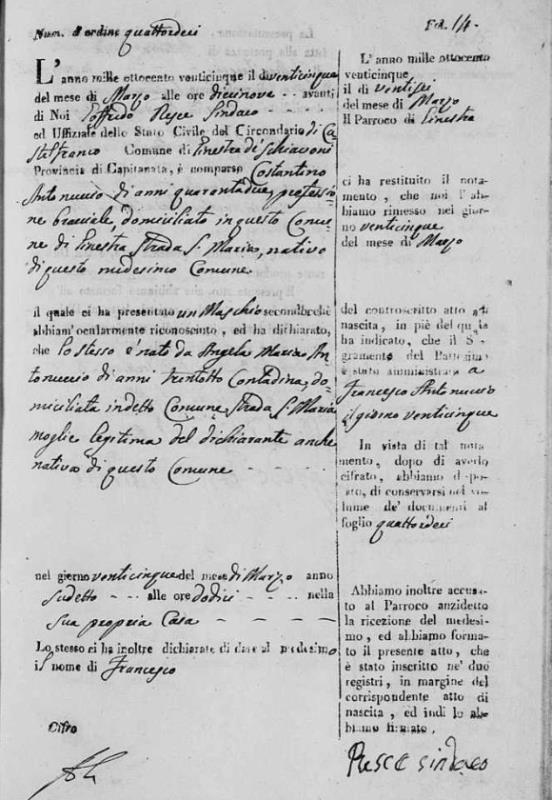 Num. d'ordine quattordeci
Fol. 14.
L'anno mille ottocento venticinque il dì venticinque
del mese di Marzo alle ore diecinove - - avanti
di Noi Loffredo Pesce Sindaco - - -
ed Uffiziale dello Stato Civile del Circondario di Ca
stelfranco Comune di Ginestra de' Schiavoni
Provincia di Capitanata, è comparso Costantino
Antonuccio di anni quarantadue, professio
ne bracciale, domiciliato in questo Comu
ne di Ginestra Strada S. Maria, nativo
di questo medesimo Comune
il quale ci ha presentato un Maschio secondocchè
abbiam' ocularmente riconosciuto, ed ha dichiarato,
che lo stesso è nato da Angela Maria An
tonuccio di anni trentotto Contadina, do
miciliata in detto Comune, Strada S. Maria
moglie legitima del dichiarante anche
nativa di questo Comune - - -
nel giorno venticinque del mese di Marzo anno
sudetto - - - alle ore dodici - - - nella
sua propria Casa - - - -
Lo stesso ci ha inoltre dichiarato di dare al medesimo
il nome di Francesco
Cifro
L'anno mille ottocento
venticinque,
il dì ventisei
del mese di Marzo
Il Parroco di Ginestra
ci ha restituito il nota-
mento, che noi l'ab-
biamo rimesso nel gior-
no venticinque
del mese di Marzo
del controscritto atto di
nascita, in piè del quale
ha indicato, che il Sa-
gramento del Battesimo
è stato amministrato a
Francesco Antonuccio
il giorno venticinque
In vista di tal nota-
mento, dopo di averlo
cifrato, abbiamo dispo-
sto, di conservarsi nel vo-
lume de' documenti al
foglio quattordeci
Abbiamo inoltre accusa-
to al Parroco anzidetto
la ricezione del medesi-
mo, ed abbiamo forma-
to il presente atto, che
è stato inscritto ne' due
registri, in margine del
corrispondente atto di
nascita, ed indi lo ab-
biamo firmato.
Pesce Sindaco